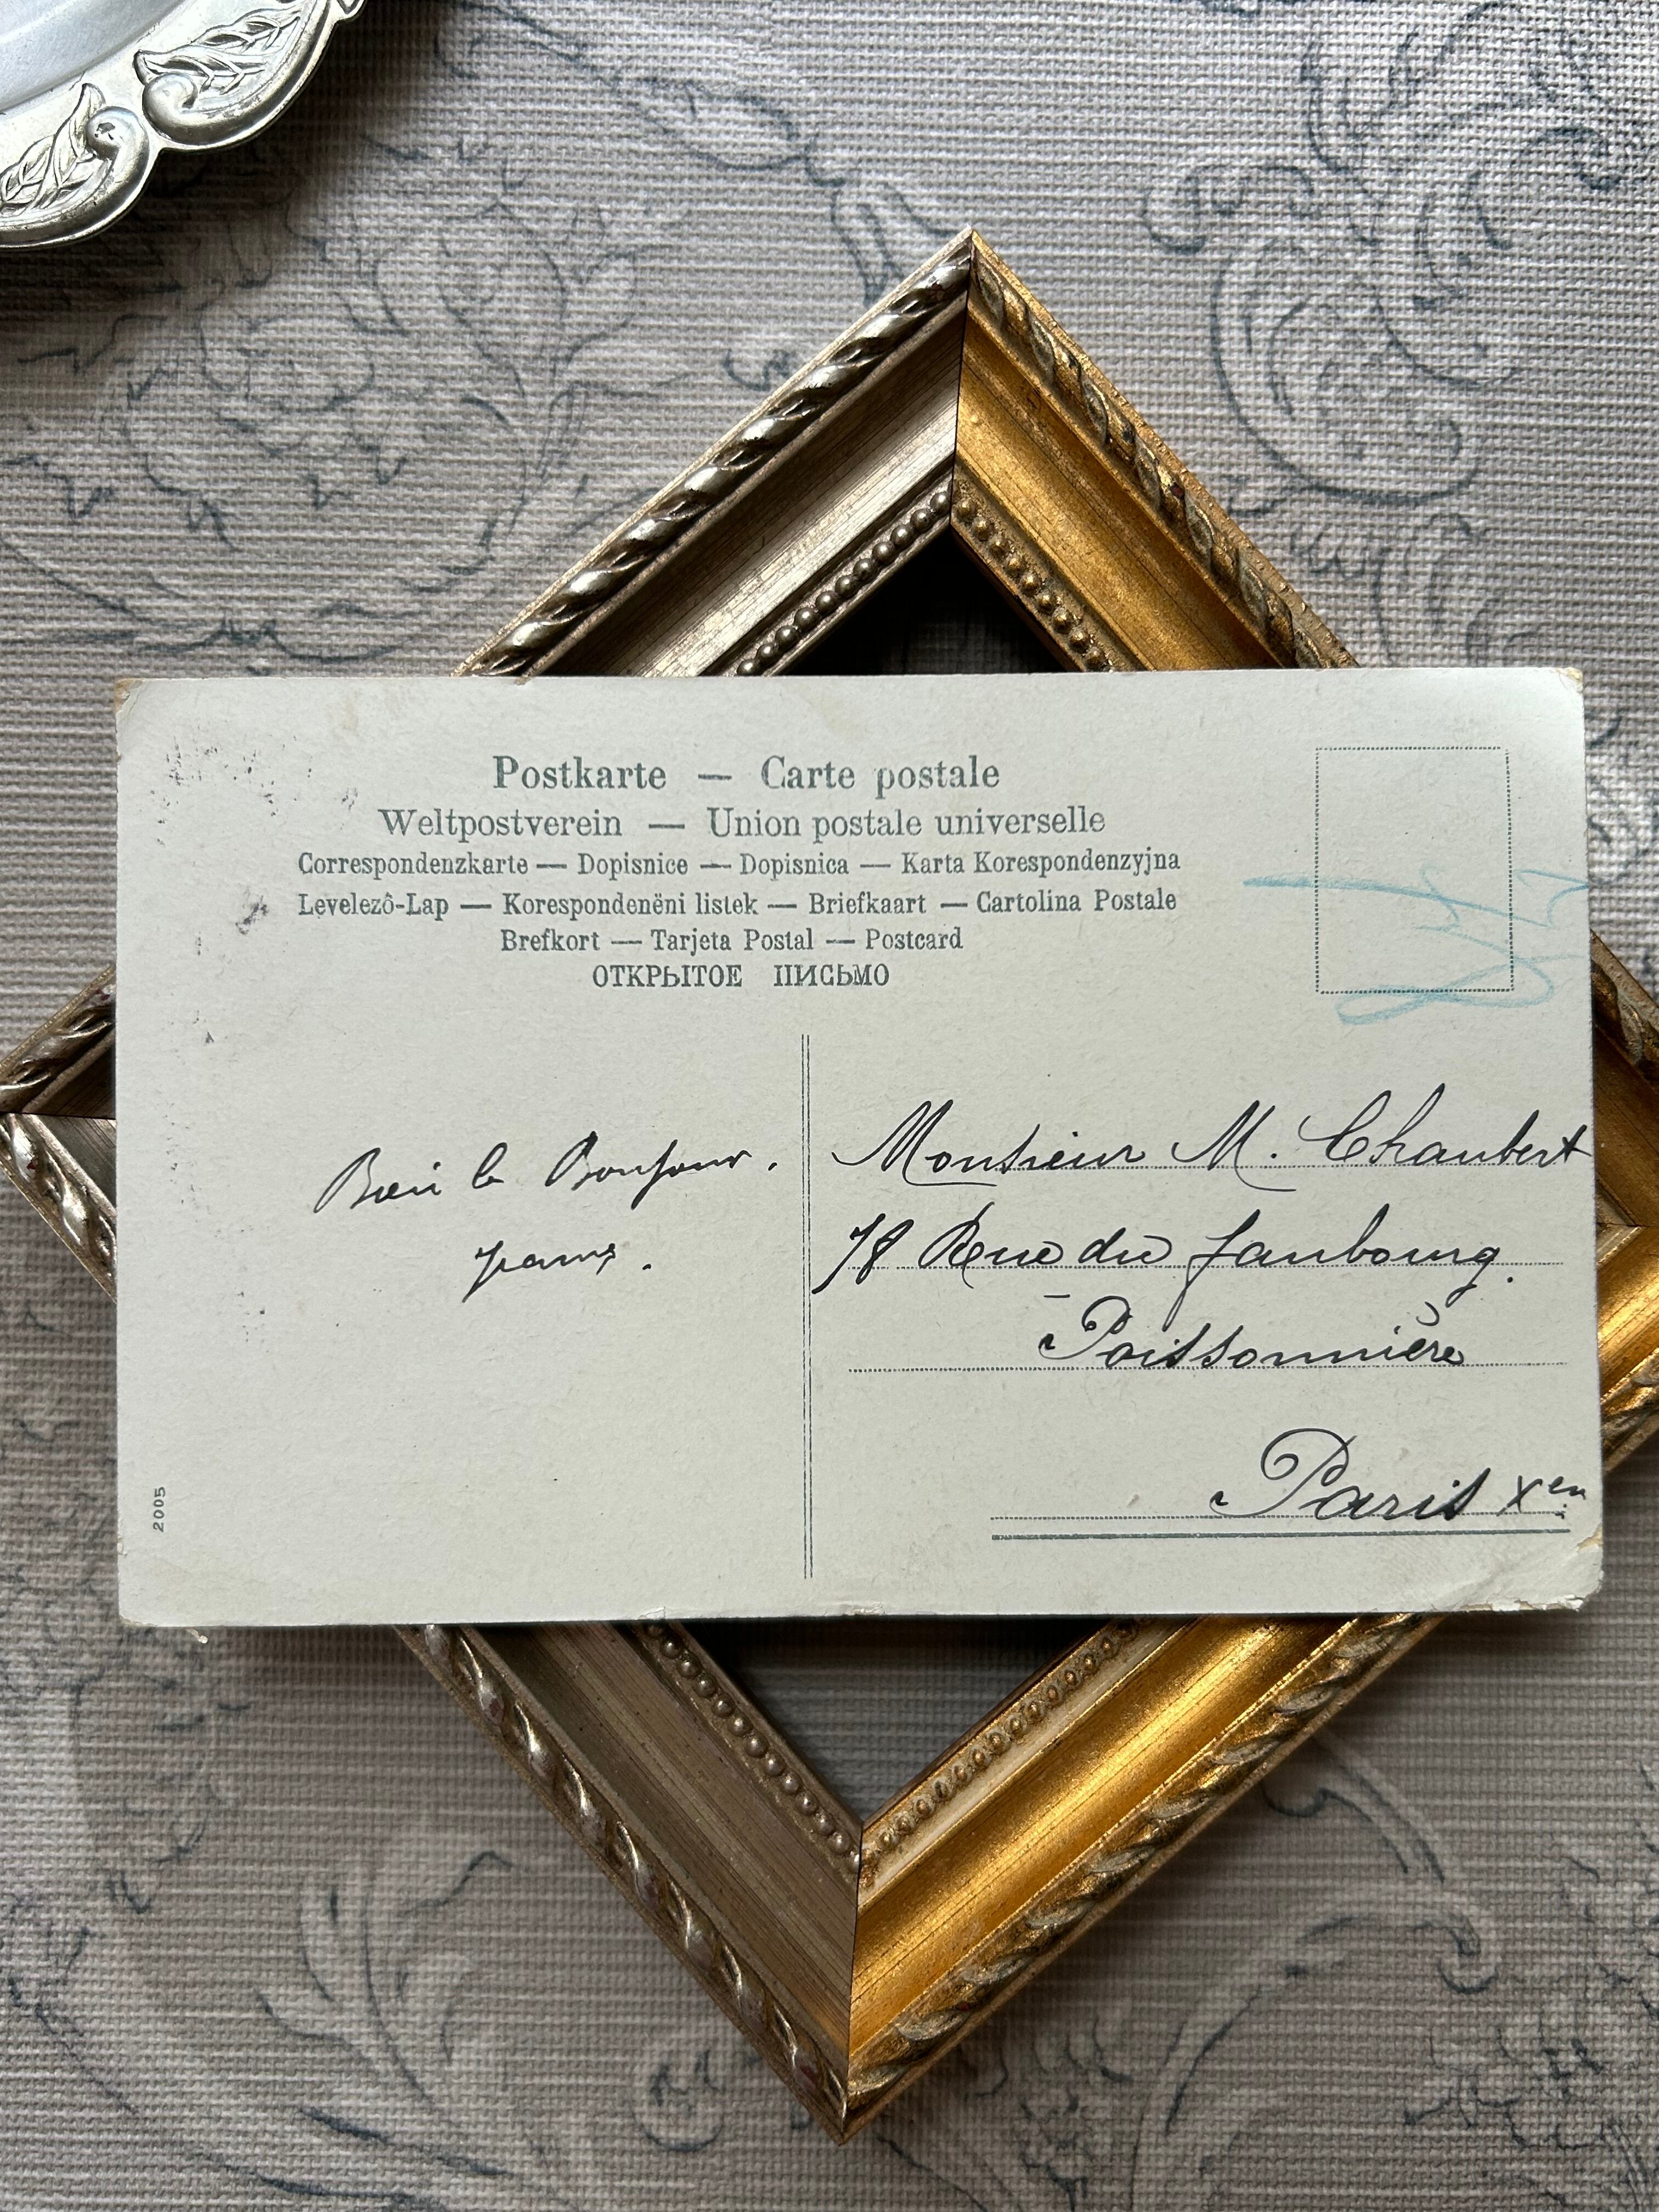 Postkarte — Carte postale
Weltpostverein — Union postale universelle
Correspondenzkarte — Dopisnice — Dopisnica — Karta Korespondenzyjna
Levelezô-Lap — Korespondenëni listek — Briefkaart — Cartolina Postale
Brefkort — Tarjeta Postal — Postcard
ОТКРЫТОЕ ПИСЬМО
Bien le Bonjour.
Monsieur M. Chaubert
78 Rue du faubourg.
Poissonnière
Paris Xen
2005